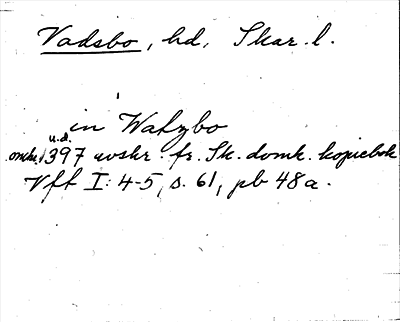 Vadsbo, hd, Skar. l.
in Watzbo
u.d.
omkr. 1397 avskr. fr. Sk. domk. kopiebok
Vft I: 4-5, s. 61, pb 48a.